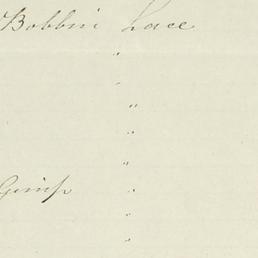 Bobbin Lace
"
"
"
"
"
Gimp "
"
"